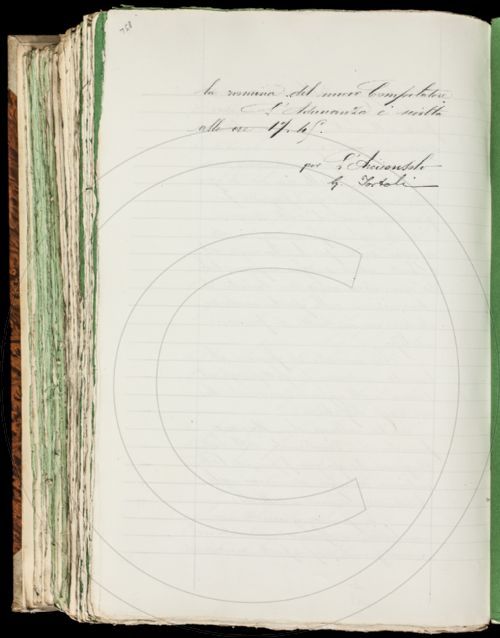 758
la nomina del nuovo Computista.
L'Adunanza è sciolta
alle ore 17.45.
per L'Arciconsolo
G. Tortoli